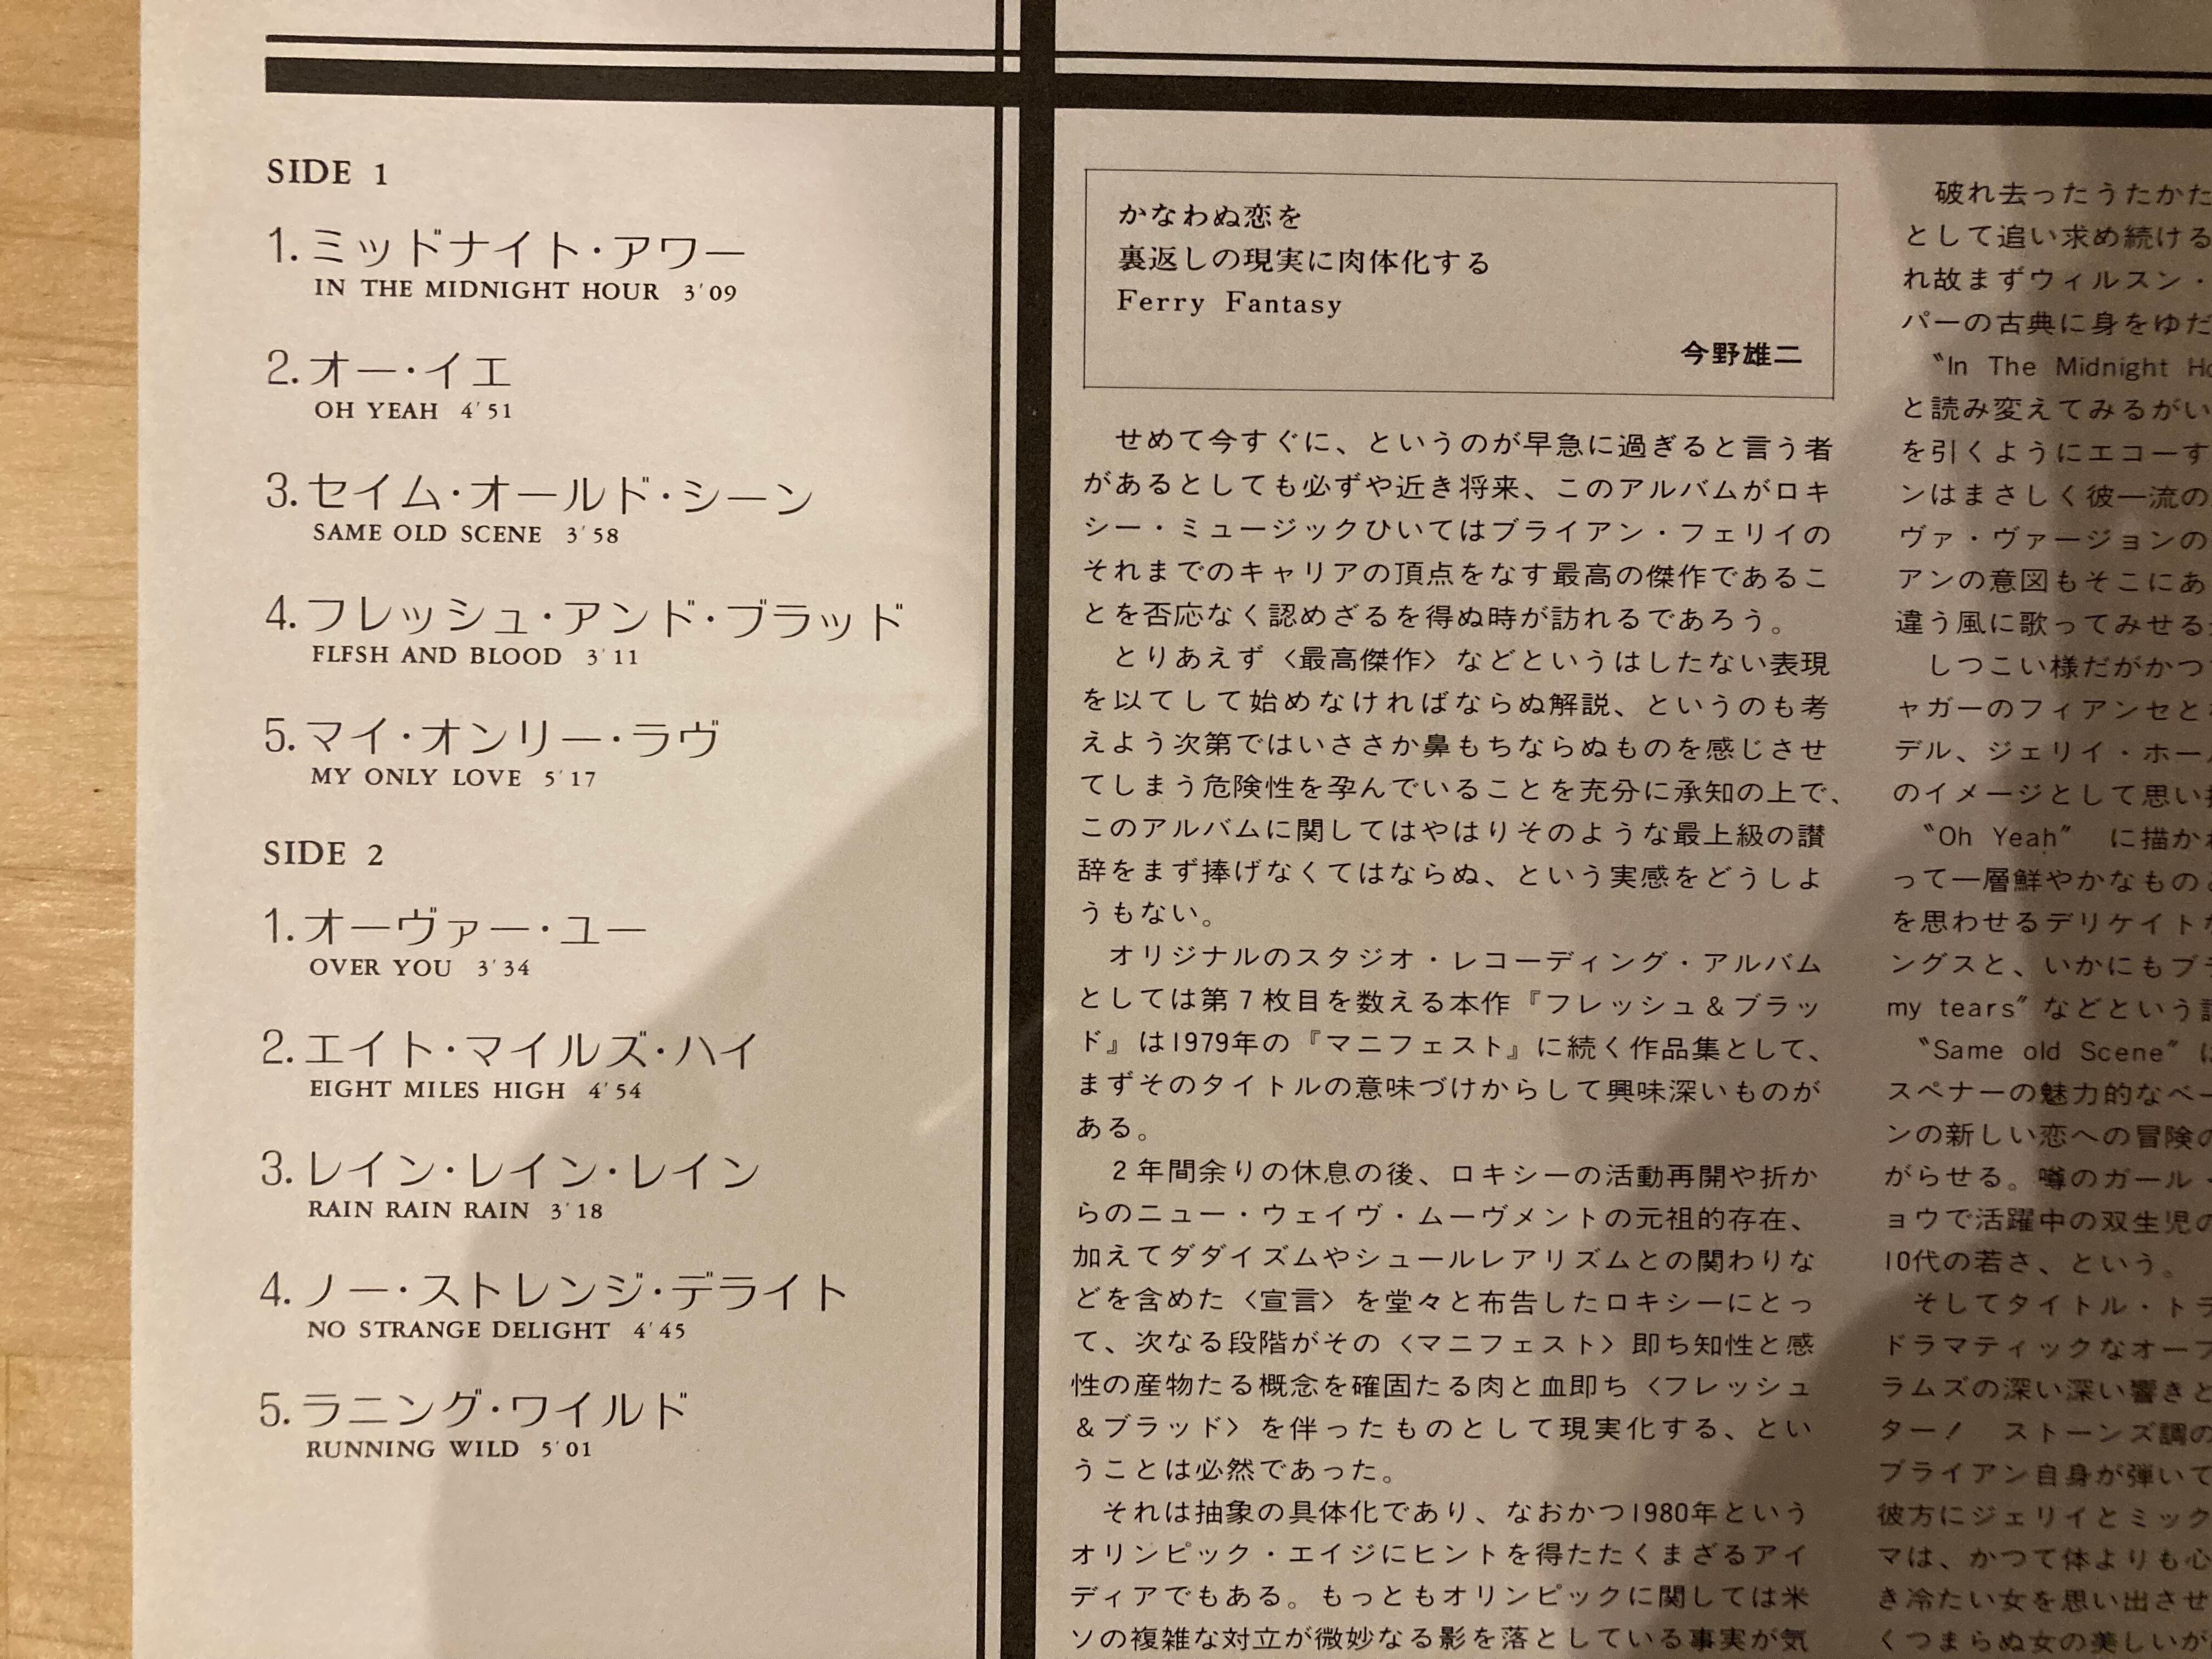 SIDE 1
1. ミッドナイト・アワー
IN THE MIDNIGHT HOUR 3′09
2. オー・イエ
OH YEAH 4′51
3. セイム・オールド・シーン
SAME OLD SCENE 3′58
4. フレッシュ・アンド・ブラッド
FLFSH AND BLOOD 3′11
5. マイ・オンリー・ラヴ
MY ONLY LOVE 5′17
SIDE 2
1. オーヴァー・ユー
OVER YOU 3′34
2. エイト・マイルズ・ハイ
EIGHT MILES HIGH 4′54
3. レイン・レイン・レイン
RAIN RAIN RAIN 3′18
4. ノー・ストレンジ・デライト
NO STRANGE DELIGHT 4′45
5. ラニング・ワイルド
RUNNING WILD 5′01
かなわぬ恋を
裏返しの現実に肉体化する
Ferry Fantasy
今野雄二
せめて今すぐに、というのが早急に過ぎると言う者
があるとしても必ずや近き将来、このアルバムがロキ
シー・ミュージックひいてはブライアン・フェリイの
それまでのキャリアの頂点をなす最高の傑作であるこ
とを否応なく認めざるを得ぬ時が訪れるであろう。
とりあえず〈最高傑作〉などというはしたない表現
を以てして始めなければならぬ解説、というのも考
えよう次第ではいささか鼻もちならぬものを感じさせ
てしまう危険性を孕んでいることを充分に承知の上で、
このアルバムに関してはやはりそのような最上級の讃
辞をまず捧げなくてはならぬ、という実感をどうしよ
うもない。
オリジナルのスタジオ・レコーディング・アルバム
としては第7枚目を数える本作『フレッシュ&ブラッ
ド』は1979年の『マニフェスト』に続く作品集として、
まずそのタイトルの意味づけからして興味深いものが
ある。
2年間余りの休息の後、ロキシーの活動再開や折か
らのニュー・ウェイヴ・ムーヴメントの元祖的存在、
加えてダダイズムやシュールレアリズムとの関わりな
どを含めた〈宣言〉を堂々と布告したロキシーにとっ
て、次なる段階がその〈マニフェスト〉即ち知性と感
性の産物たる概念を確固たる肉と血即ち〈フレッシュ
&ブラッド〉を伴ったものとして現実化する、とい
うことは必然であった。
それは抽象の具体化であり、なおかつ1980年という
オリンピック・エイジにヒントを得たたくまざるアイ
ディアでもある。もっともオリンピックに関しては米
ソの複雑な対立が微妙なる影を落としている事実が気
破れ去ったうたかた
として追い求め続ける
れ故まずウィルスン・
パーの古典に身をゆだ
〝In The Midnight Ho
と読み変えてみるがい
を引くようにエコーす
ンはまさしく彼一流の
ヴァ・ヴァージョンの
アンの意図もそこにあ
違う風に歌ってみせる
しつこい様だがかつ
ャガーのフィアンセと
デル、ジェリイ・ホー
のイメージとして思い
〝Oh Yeah〞 に描か
って一層鮮やかなもの
を思わせるデリケイト
ングスと、いかにもブ
my tears〞などという
〝Same old Scene〞
スペナーの魅力的なベー
ンの新しい恋への冒険の
がらせる。噂のガール・
ョウで活躍中の双生児の
10代の若さ、という。
そしてタイトル・トラ
ドラマティックなオープ
ラムズの深い深い響きと
ター! ストーンズ調の
ブライアン自身が弾いて
彼方にジェリイとミック
マは、かつて体よりも心
き冷たい女を思い出させ
くつまらぬ女の美しいが